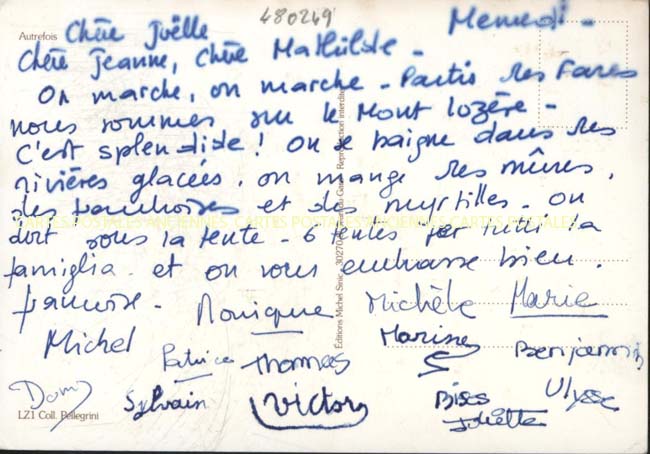 480249
Autrefois
Chère Joëlle
Mercredi -
Chère Jeanne, Chère Mathilde -
On marche, on marche - Partis des Fares
nous sommes sur le Mont Lozère -
C'est splendide! On se baigne dans des
rivières glacées, on mange des mûres,
des framboises et des myrtilles - on
dort sous la tente - 6 tentes per tutti la
famiglia - et on vous embrasse bien.
françoise - Monique Michèle Marie
Michel Patrice Thomas Marine Benjamin
Domi Sylvain Victor Bises Ulysse
Joliette
LZ1 Coll. Pellegrini
Éditions Michel Sinic, 30270 Reproduction interdite
CARTES POSTALES ANCIENNES CARTES POSTALES ANCIENNES CARTES POSTALES